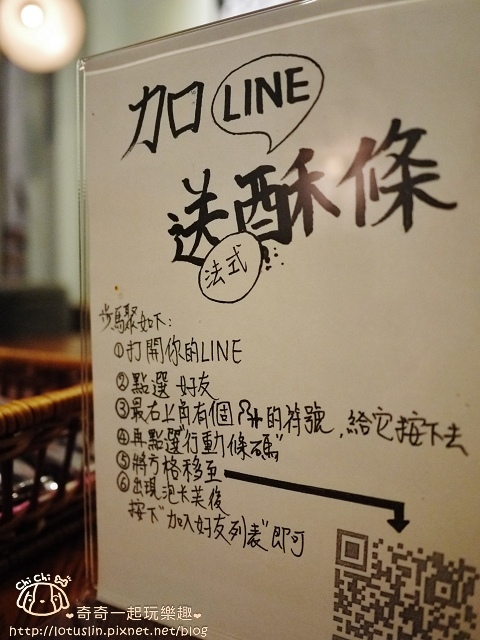 加 LINE
送酥條
法式
步驟如下:
①打開你的LINE
②點選 好友
③最右上角有個 的符號,給它按下去
④再點選"行動條碼"
⑤將方格移至
⑥出現泡卡芙後
按下"加入好友列表"即可
Chi Chi
奇奇一起玩樂趣
http://lotuslin.pixnet.net/blog